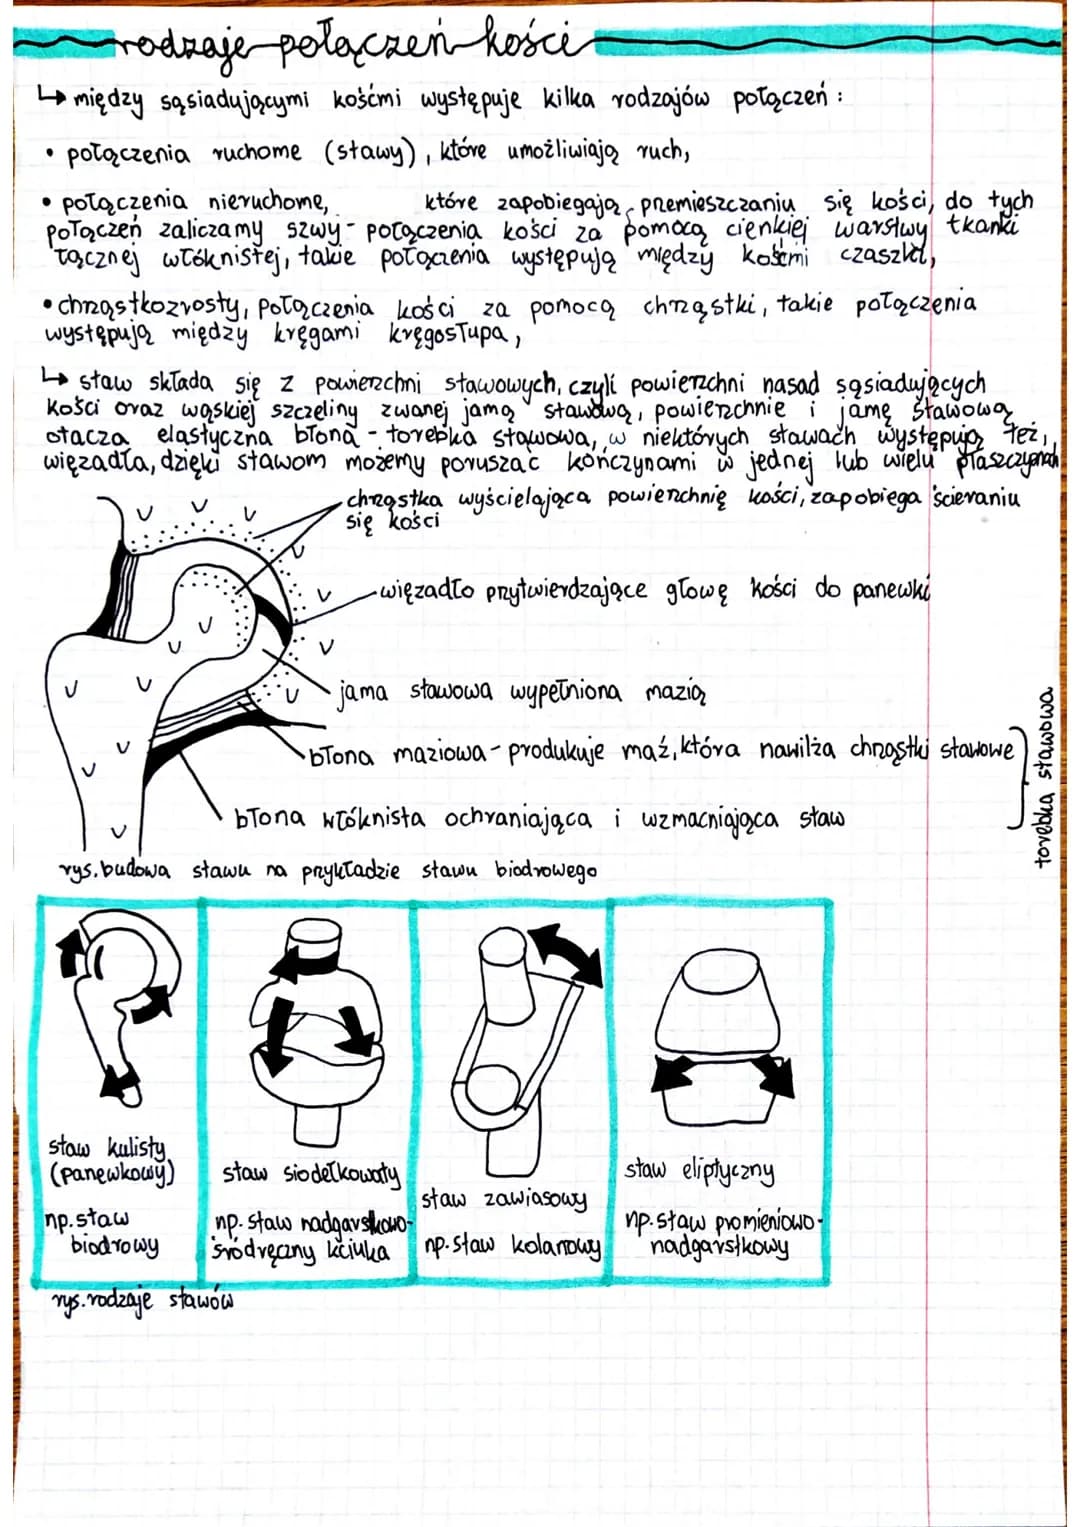 rodzaje połączeń kości
↳ między sąsiadującymi kośćmi występuje kilka rodzajów połączeń:
• połączenia ruchome (stawy), które umożliwiają ruch,
• połączenia nieruchome, które zapobiegają przemieszczaniu się kości, do tych
połączeń zaliczamy szwy - połączenia kości za pomocą cienkiej warstwy tkanki
łącznej włóknistej, takie połączenia występują między kośćmi czaszki,
• chrząstkozrosty, połączenia kości za pomocą chrząstki, takie połączenia
występują między kręgami kręgosłupa,
↳ staw składa się z powierzchni stawowych, czyli powierzchni nasad sąsiadujących
kości oraz wąskiej szczeliny zwanej jamą stawową, powierzchnie i jamę stawową
otacza elastyczna błona - torebka stawowa, w niektórych stawach występują też
więzadła, dzięki stawom możemy poruszać kończynami w jednej lub wielu płaszczyznach
chrząstka wyścielająca powierzchnię kości, zapobiega ścieraniu
się kości
więzadło przytwierdzające głowę kości do panewki
jama stawowa wypełniona mazią
błona maziowa - produkuje maź, która nawilża chrząstki stawowe
błona włóknista ochraniająca i wzmacniająca staw
torebka stawowa
rys. budowa stawu na przykładzie stawu biodrowego
staw kulisty
(panewkowy)
np. staw
biodrowy
staw siodełkowaty
np. staw nadgarstkowo-
śródręczny kciuka
staw zawiasowy
np. staw kolanowy
staw eliptyczny
np. staw promieniowo-
nadgarstkowy
rys. rodzaje stawów